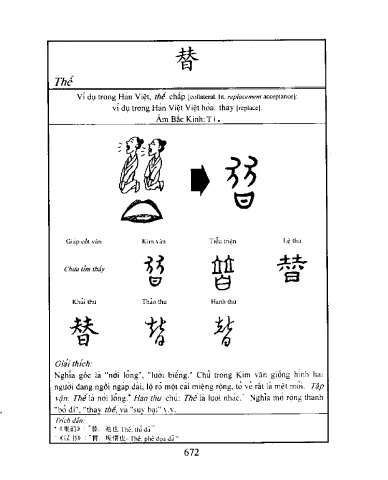 替
Thế
Ví dụ trong Hán Việt, thế chấp [collateral. lit. replacement acceptance];
ví dụ trong Hán Việt Việt hóa: thay [replace].
Âm Bắc Kinh: Tì.
Giáp cốt văn Kim văn Tiểu triện Lệ thư
Chưa tìm thấy
替
Khải thư Thảo thư Hành thư
替 替 替
Giải thích:
Nghĩa gốc là "nới lỏng", "lười biếng." Chữ trong Kim văn giống hình hai
người đang ngồi ngáp dài, lộ rõ một cái miệng rộng, tỏ vẻ rất là mệt mỏi. Tập
vận: Thế là nới lỏng.* Hán thư chú: Thế là lười nhác. Nghĩa mở rộng thành
"bỏ đi", "thay thế, và "suy bại" v.v.
Trích dẫn:
672